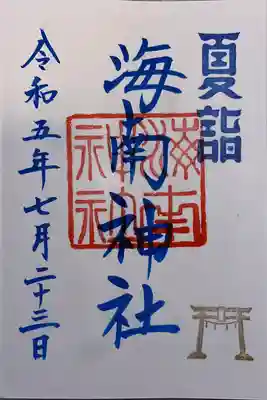 夏詣
海南神社
海南神社
令和五年七月二十三日